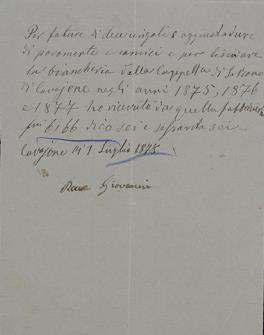 Per fatture di due cingoli e aggiustadure
di paramente e camici e per lisciare
la biancheria della Cappella di S. Bruno
di Cavajone negli anni 1875, 1876
e 1877 ho ricevuto da quella fabbriceria
66 dico sei e sessanta sei
Cavajone li 1 Luglio 1878.
Giovannini